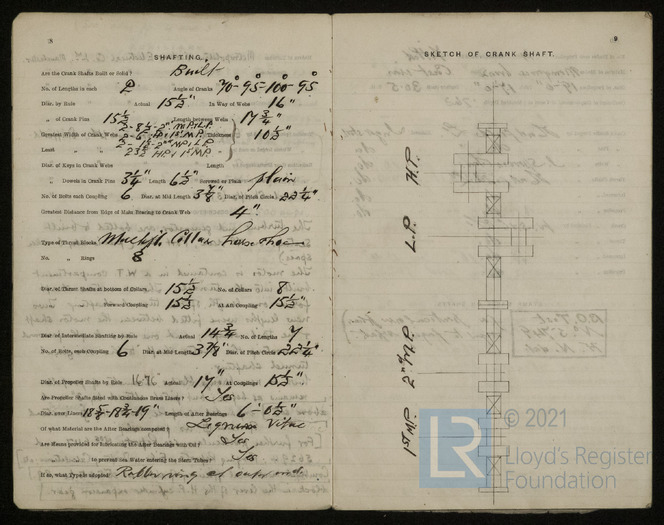 8
SHAFTING.
Are the Crank Shafts Built or Solid? Built
No. of Lengths in each 2 Angle of Cranks 70°-95°-100°-95°
Diar. by Rule Actual 15 1/2" In Way of Webs 16"
" of Crank Pins 15 1/2" Length between Webs 17 3/4"
Greatest Width of Crank Webs Thickness 10 1/2"
Least "
Diar. of Keys in Crank Webs Length
" Dowels in Crank Pins 3 1/4" Length 6 1/2" Screwed or Plain plain
No. of Bolts each Coupling 6 Diar. at Mid Length 3 7/8" Diar. of Pitch Circle 22 1/4"
Greatest Distance from Edge of Main Bearing to Crank Web 4"
Type of Thrust Blocks Multiple Collar horse shoe
No. " Rings 8
Diar. of Thrust Shafts at bottom of Collars 15 1/2 No. of Collars 8
" " Forward Coupling 15 1/2 At Aft Coupling 15 1/2"
Diar. of Intermediate Shafting by Rule Actual 14 3/4 No. of Lengths 7
No. of Bolts, each Coupling 6 Diar. at Mid Length 3 7/8" Diar. of Pitch Circle 22 1/4"
Diar. of Propeller Shafts by Rule Actual 17" At Couplings 15 1/2"
Are Propeller Shafts fitted with Continuous Brass Liners? Yes
Diar. over Liners 18 5/8-18 3/4-19" Length of After Bearings 6'-0 1/2"
Of what Material are the After Bearings composed? Lignum Vitae
Are Means provided for lubricating the After Bearings with Oil? Yes
" " to prevent Sea Water entering the Stern Tubes? Yes
If so, what Type is adopted? Rubber ring at outer end
9
SKETCH OF CRANK SHAFT.
H.P.
L.P.
2nd M.P.
1st M.P.
LR
© 2021
Lloyd's Register
Foundation